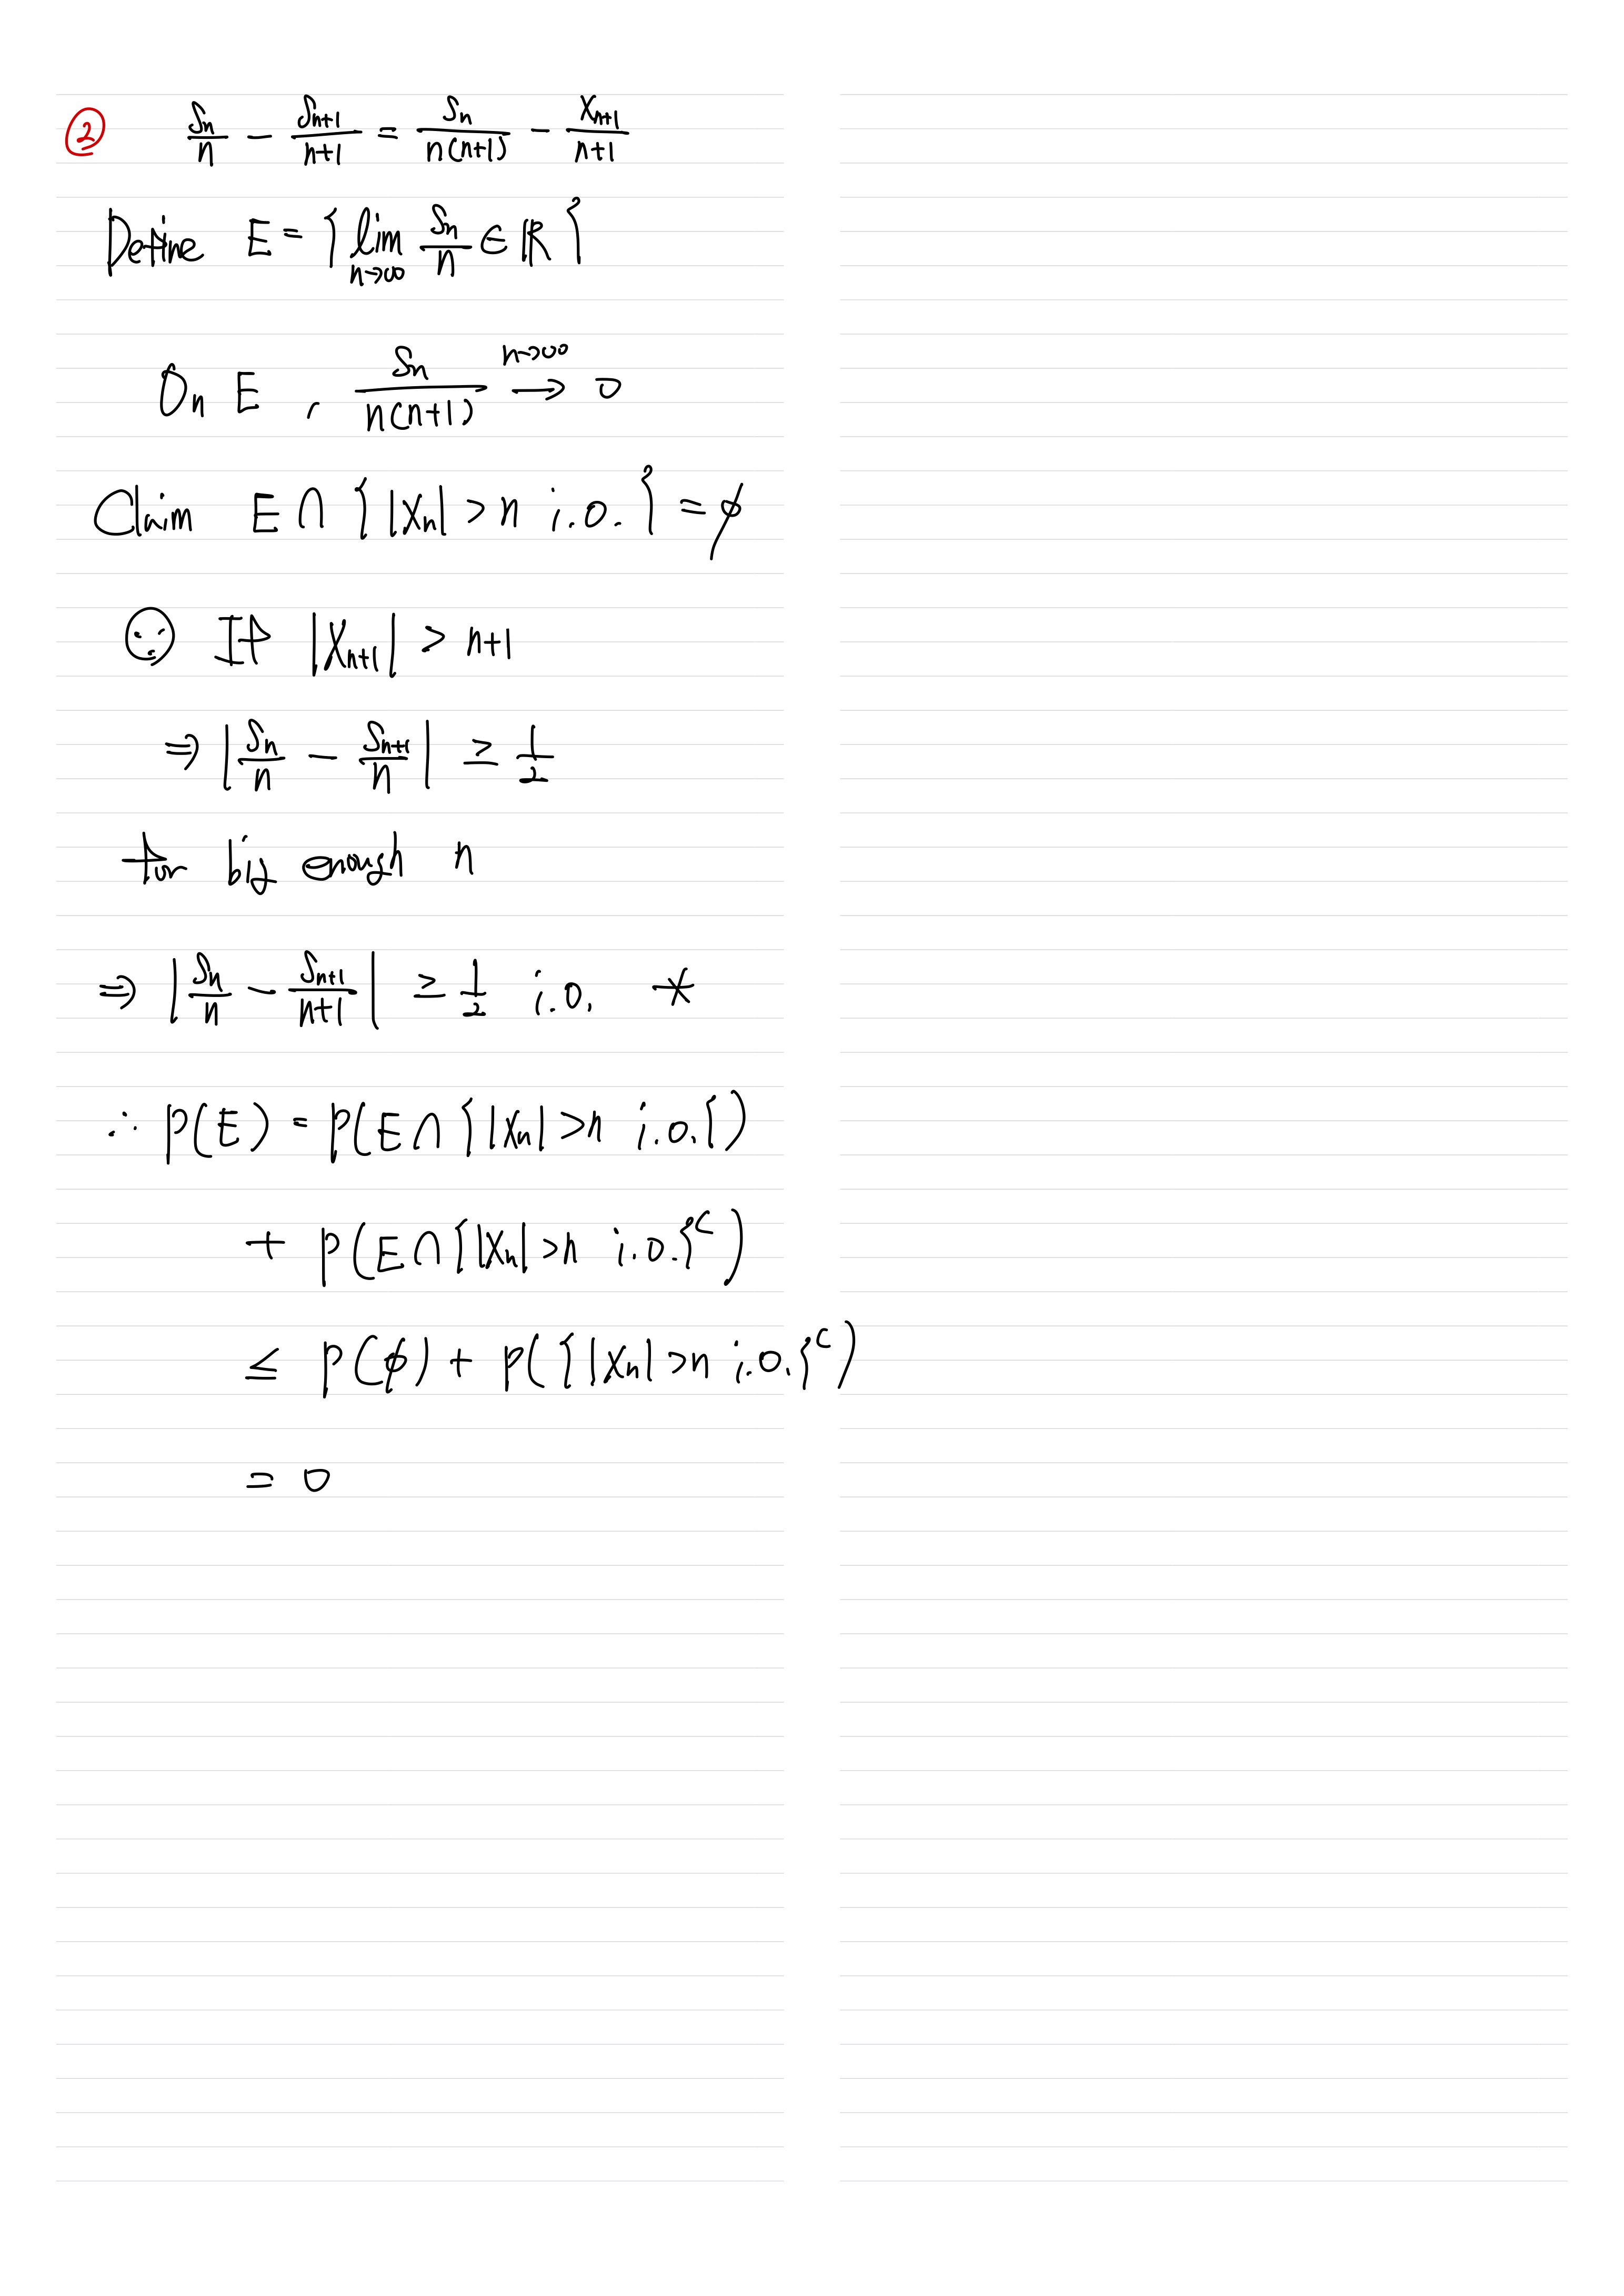 ② Sn/n − Sn+1/n+1 = Sn/n(n+1) − Xn+1/n+1
Define E = { lim n→∞ Sn/n ∈ ℝ }
On E , Sn/n(n+1) n→∞ → 0
Claim E ∩ { |Xn| > n i.o. } = ∅
∵ If |Xn+1| > n+1
⇒ | Sn/n − Sn+1/n | ≥ 1/2
for big enough n
⇒ | Sn/n − Sn+1/n+1 | ≥ 1/2 i.o. ※
∴ P(E) = P(E ∩ { |Xn| > n i.o. })
+ P(E ∩ { |Xn| > n i.o. }ᶜ)
≤ P(∅) + P({ |Xn| > n i.o. }ᶜ)
= 0